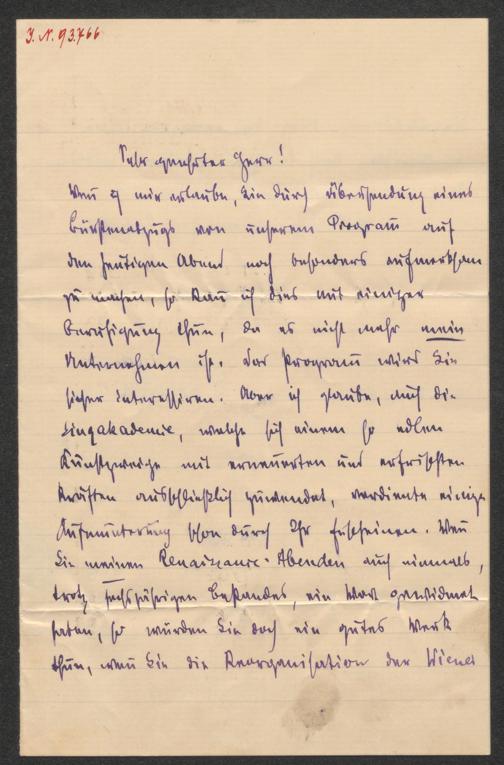 J. N. 93.766
Sehr geehrter Herr!
Wen̄ ich mir erlaube, Sie durch Übersendung eines
Bürstenabzugs von unserem Program̄ auf
den heutigen Abend noch besonders aufmerksam
zu machen, so kan̄ ich dies mit einiger
Beruhigung thun, da es nicht mehr mein
Unternehmen ist. Das Program̄ wird Sie
sicher interessiren. Aber ich glaube, auch die
Singakademie, welche sich einem so edlen
Kunstzweige mit erneuerten und erfrischten
Kräften ausschließlich zuwendet, verdiente einige
Aufmunterung schon durch Ihr Erscheinen. Wen̄
Sie meinen Renaissance-Abenden auch niemals,
trotz sechsjährigen Bestandes, ein Wort gewidmet
haben, so würden Sie doch ein gutes Werk
thun, wen̄ Sie die Reorganisation der Wiener